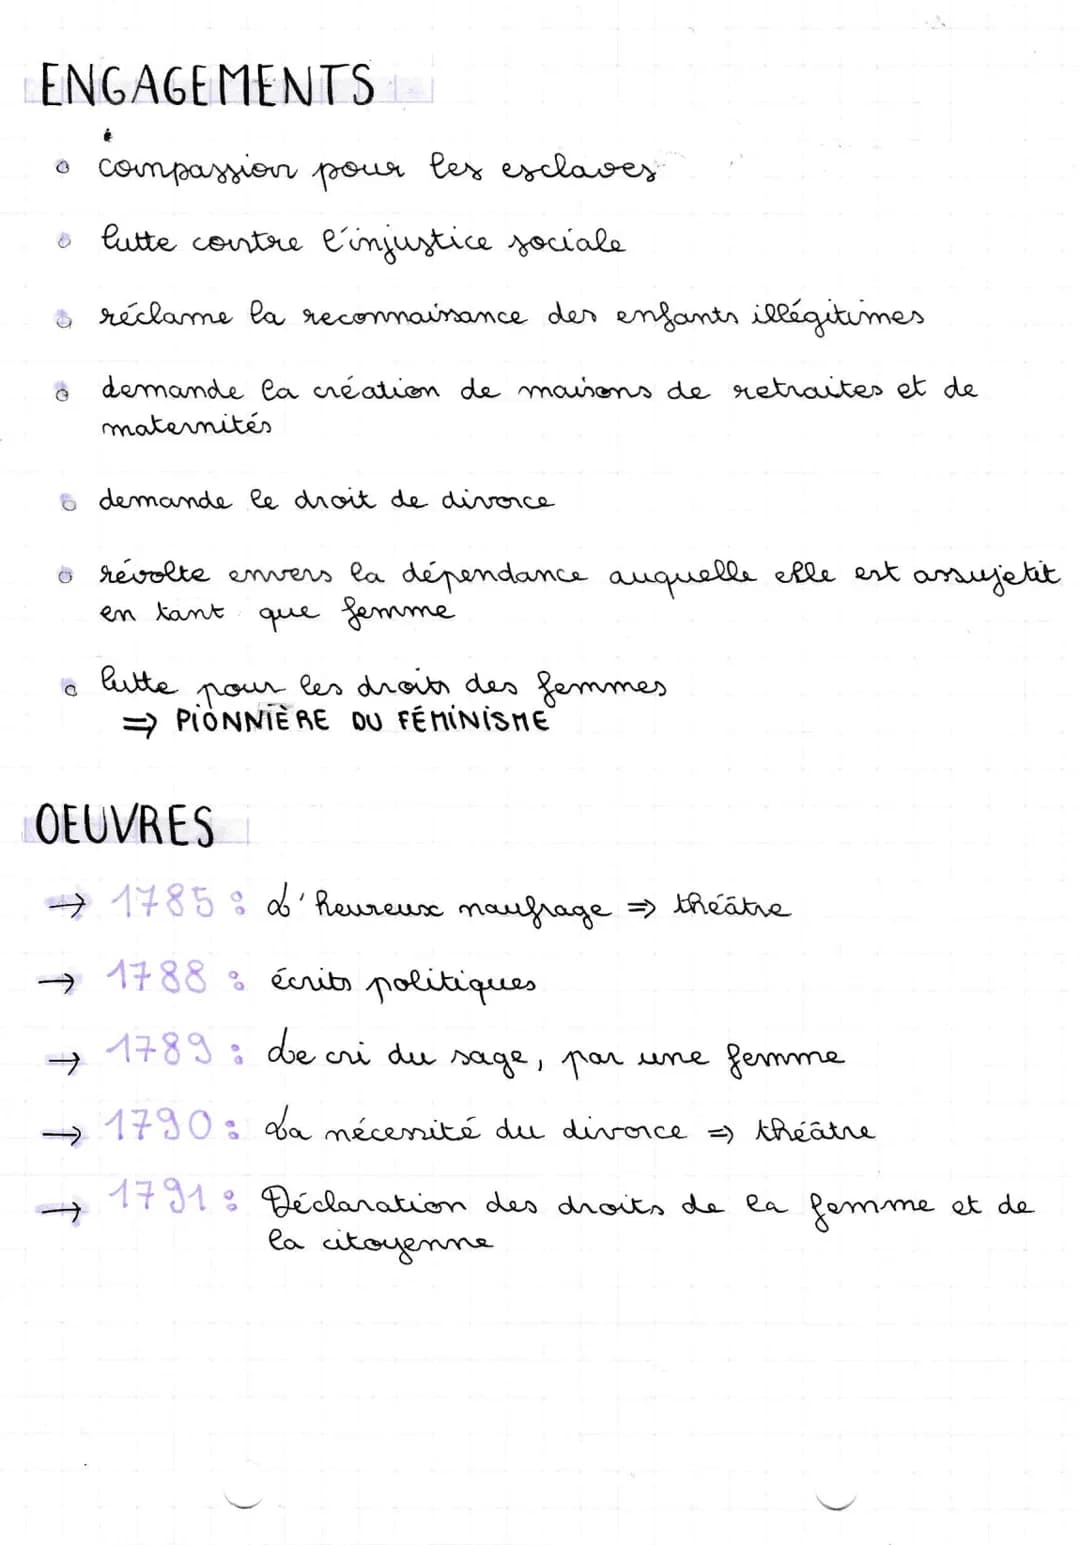 ENGAGEMENTS
compassion pour les esclaves
lutte contre l'injustice sociale
réclame la reconnaissance des enfants illégitimes
demande la création de maisons de retraites et de
maternités
demande le droit de divorce
révolte envers la dépendance auquelle elle est assujetit
en tant que femme
lutte pour les droits des femmes
⇒ PIONNIÈRE DU FÉMINISME
OEUVRES
→ 1785 : L'heureux naufrage ⇒ théâtre
→ 1788 : écrits politiques
→ 1789 : Le cri du sage, par une femme
→ 1790 : La nécessité du divorce ⇒ théâtre
→ 1791 : Déclaration des droits de la femme et de
la citoyenne